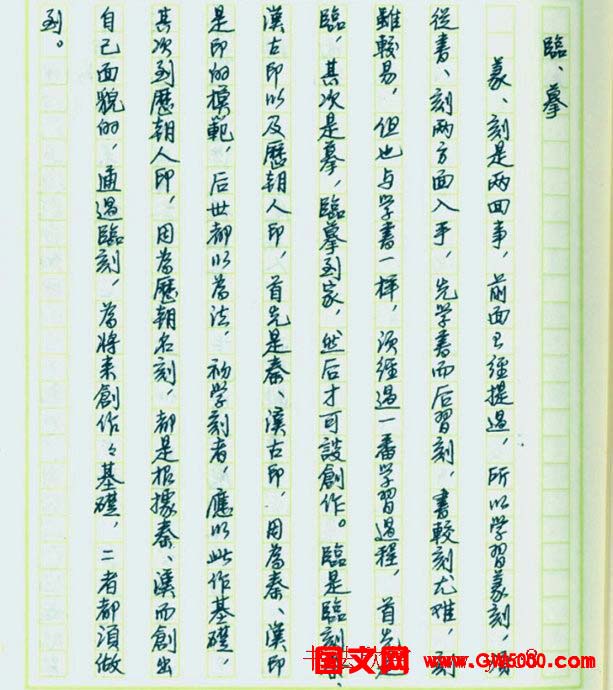 臨、摹
篆、刻是两回事，前面已經提過，所以学習篆刻，須
從書、刻两方面入手，先学書而后習刻，書較刻尤难，刻
雖較易，但也与学書一樣，须經過一番学習過程，首先是
臨，其次是摹，臨摹到家，然后才可談創作。臨是臨刻秦、
漢古印以及歷朝人印，首先是秦、漢古印，因為秦、漢印
是印的模範，后世都以為法，初学刻者，應以此作基礎，
其次到歷朝人印，因為歷朝名刻，都是根據秦、漢而創出
自己面貌的，通過臨刻，為將来創作々基礎，二者都須做
到。
国文网
www.GW5000.com